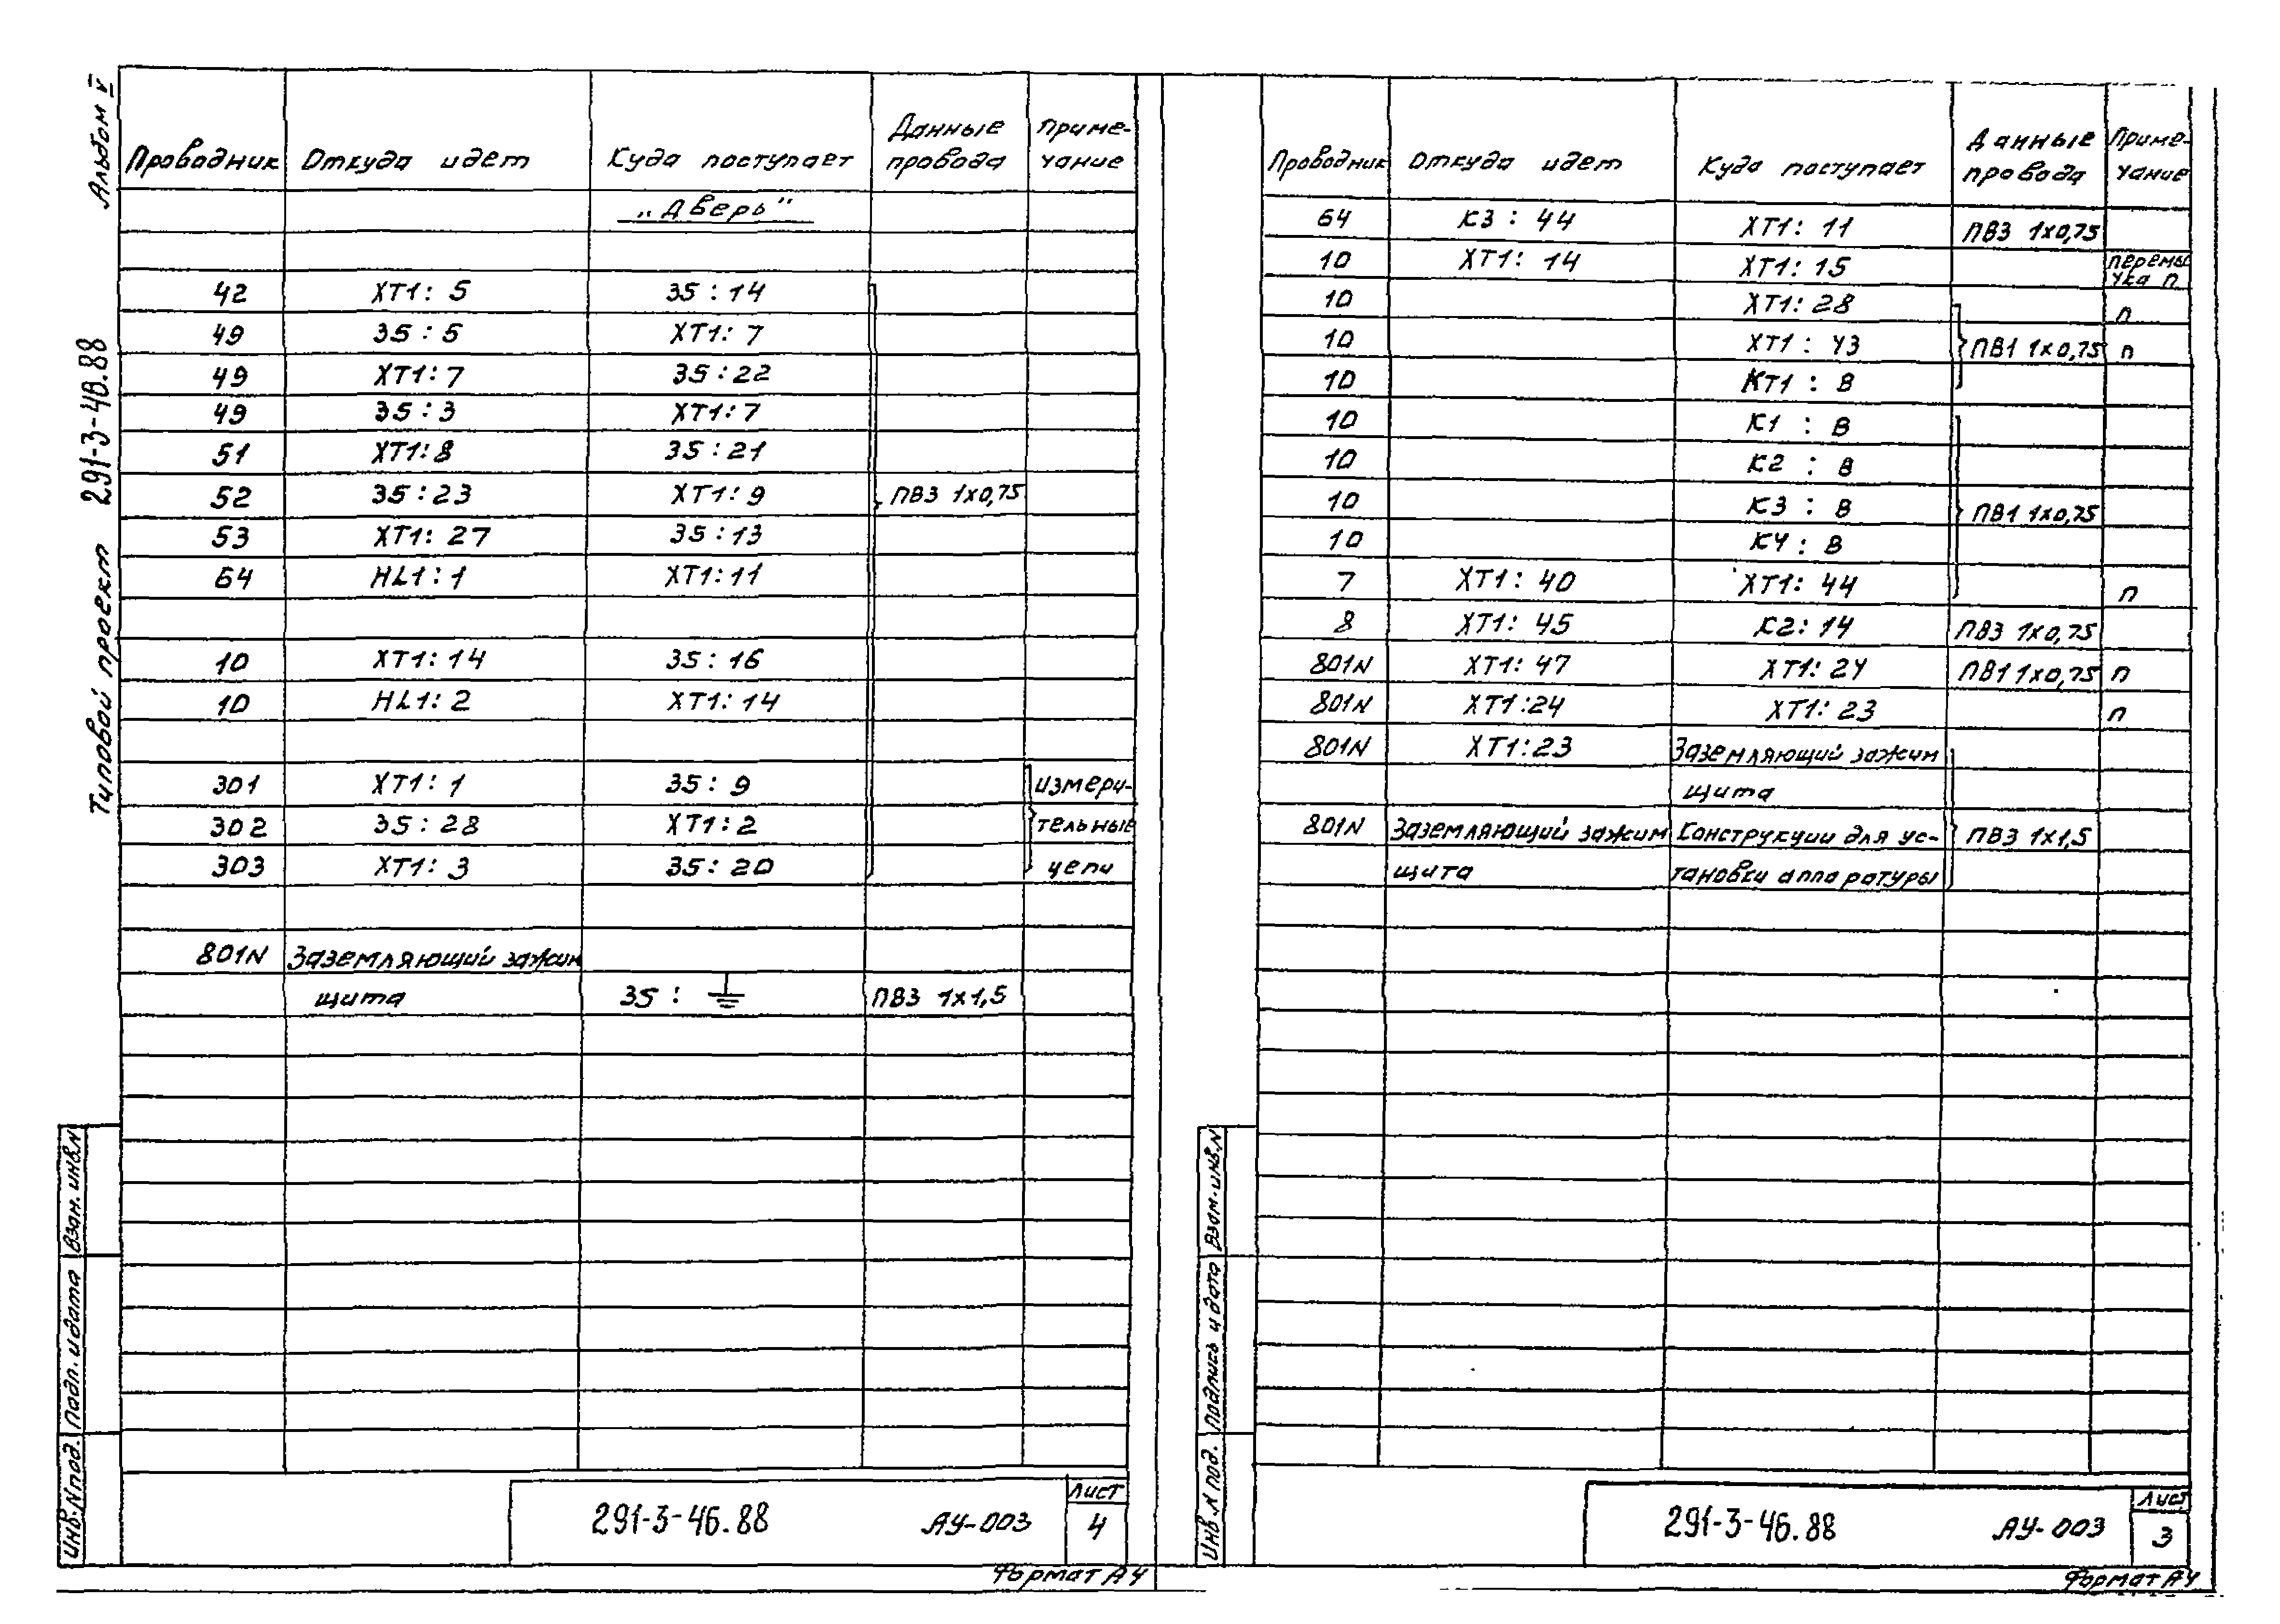 Альбом V
Типовой проект 291-3-48.88
Проводник Откуда идет Куда поступает Данные провода Примечание
„Дверь"
42 XT1: 5 35 : 14
49 35 : 5 XT1: 7
49 XT1: 7 35 : 22
49 35 : 3 XT1: 7
51 XT1: 8 35 : 21
52 35 : 23 XT1: 9 ПВ3 1х0,75
53 XT1: 27 35 : 13
64 HL1 : 1 XT1: 11
10 XT1: 14 35 : 16
10 HL1: 2 XT1: 14
301 XT1: 1 35 : 9 измери-
302 35 : 28 XT1: 2 тельные
303 XT1: 3 35 : 20 цепи
801N Заземляющий зажим
щита 35 : ⏚ ПВ3 1х1,5
Взам. инв.N
Подп. и дата
Инв.Nпод.
291-3-46.88 АУ-003
Лист
4
Формат А4
Проводник Откуда идет Куда поступает Данные провода Примечание
64 К3 : 44 XT1: 11 ПВ3 1х0,75
10 XT1: 14 XT1: 15 перемы
чка п
10 XT1: 28 п
10 XT1 : 43 ПВ1 1х0,75 п
10 КТ1 : В
10 К1 : В
10 К2 : В
10 К3 : В ПВ1 1х0,75
10 К4 : В
7 XT1: 40 XT1: 44 п
8 XT1: 45 К2: 14 ПВ3 1х0,75
801N XT1: 47 XT1: 24 ПВ1 1х0,75 п
801N XT1:24 XT1: 23 п
801N XT1:23 Заземляющий зажим
щита
801N Заземляющий зажим Конструкции для ус- ПВ3 1х1,5
щита тановки аппаратуры
Взам. инв.N
Подпись и дата
Инв.N под.
291-3-46.88 АУ-003
Лист
3
Формат А4